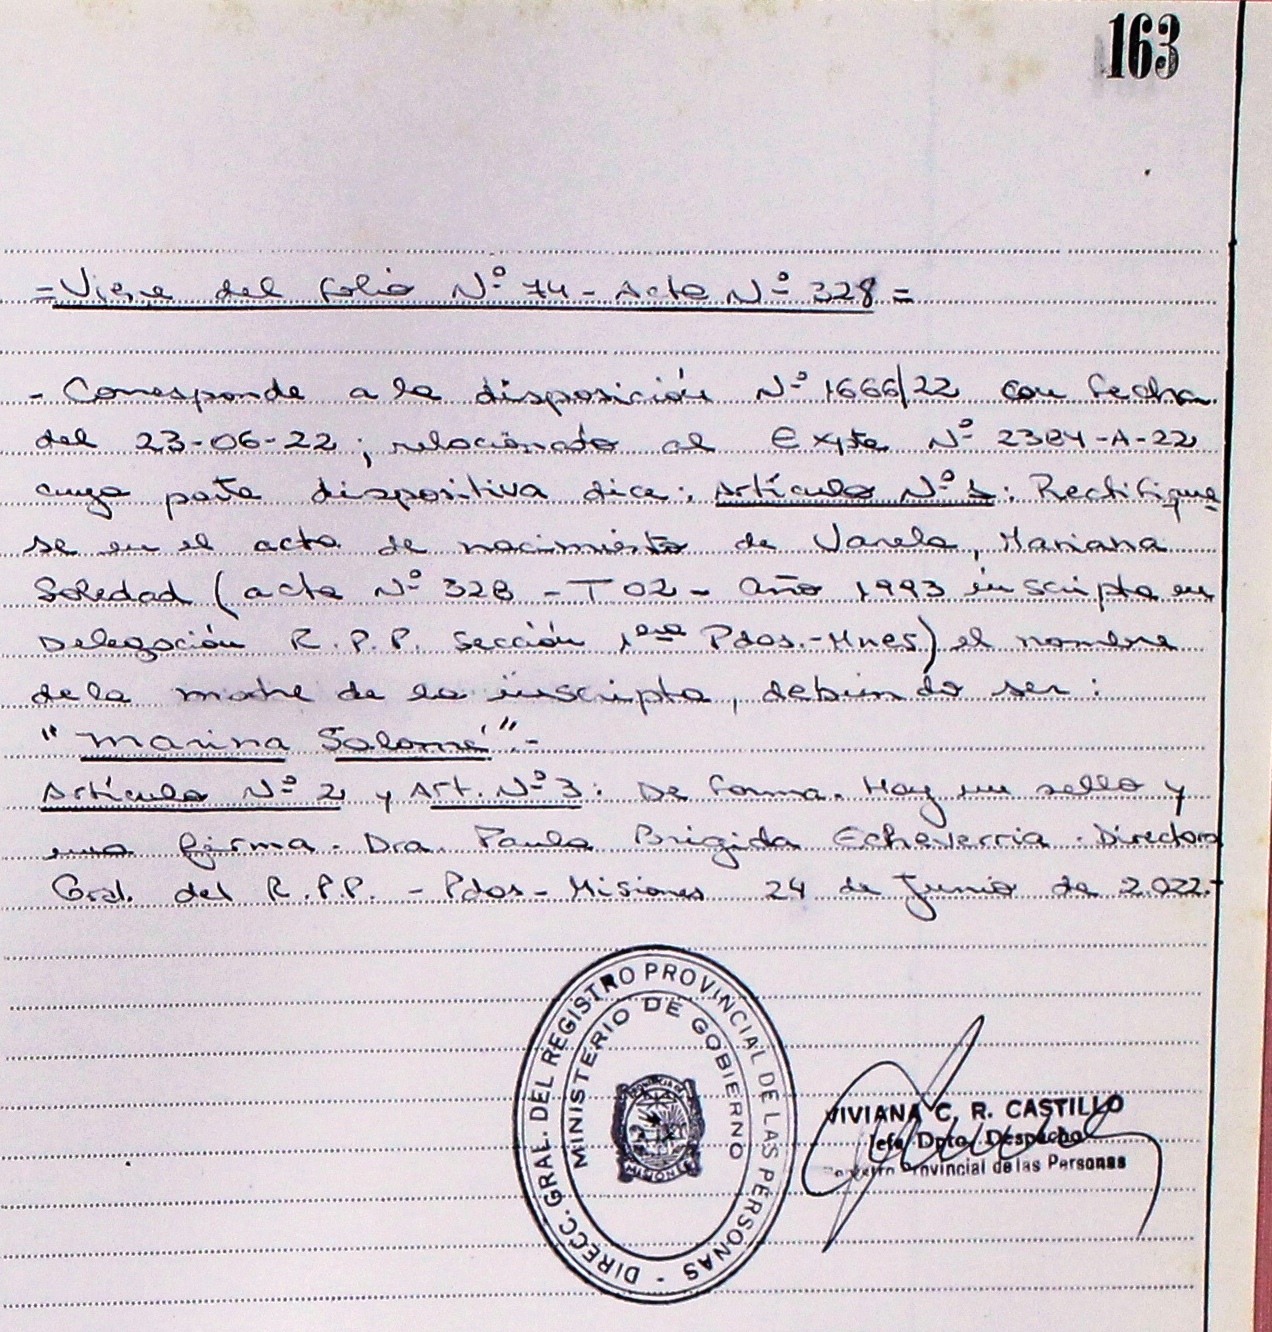 163
= Viene del folio Nº 74 - Acta Nº 328 =
- Corresponde a la disposición Nº 1666/22 con fecha
del 23-06-22; relacionado al Expte Nº 2384-A-22
cuya parte dispositiva dice: Artículo Nº 1: Rectifique
se en el acta de nacimiento de Varela, Mariana
Soledad (acta Nº 328 - T02 - Año 1993 inscripta en
Delegación R.P.P. Sección 1era Pdos.-Mnes) el nombre
de la madre de la inscripta, debiendo ser:
"Marina Salomé".-
Artículo Nº 2 y Art. Nº 3: De forma. Hay un sello y
una firma. Dra. Paula Brigida Echeverria. Directora
Gral. del R.P.P. - Pdos - Misiones 24 de Junio de 2.022.-
DIRECC. GRAL. DEL REGISTRO PROVINCIAL DE LAS PERSONAS -
MINISTERIO DE GOBIERNO
PROVINCIA DE
MISIONES
VIVIANA C. R. CASTILLO
Jefa Dpto. Despacho
Registro Provincial de las Personas